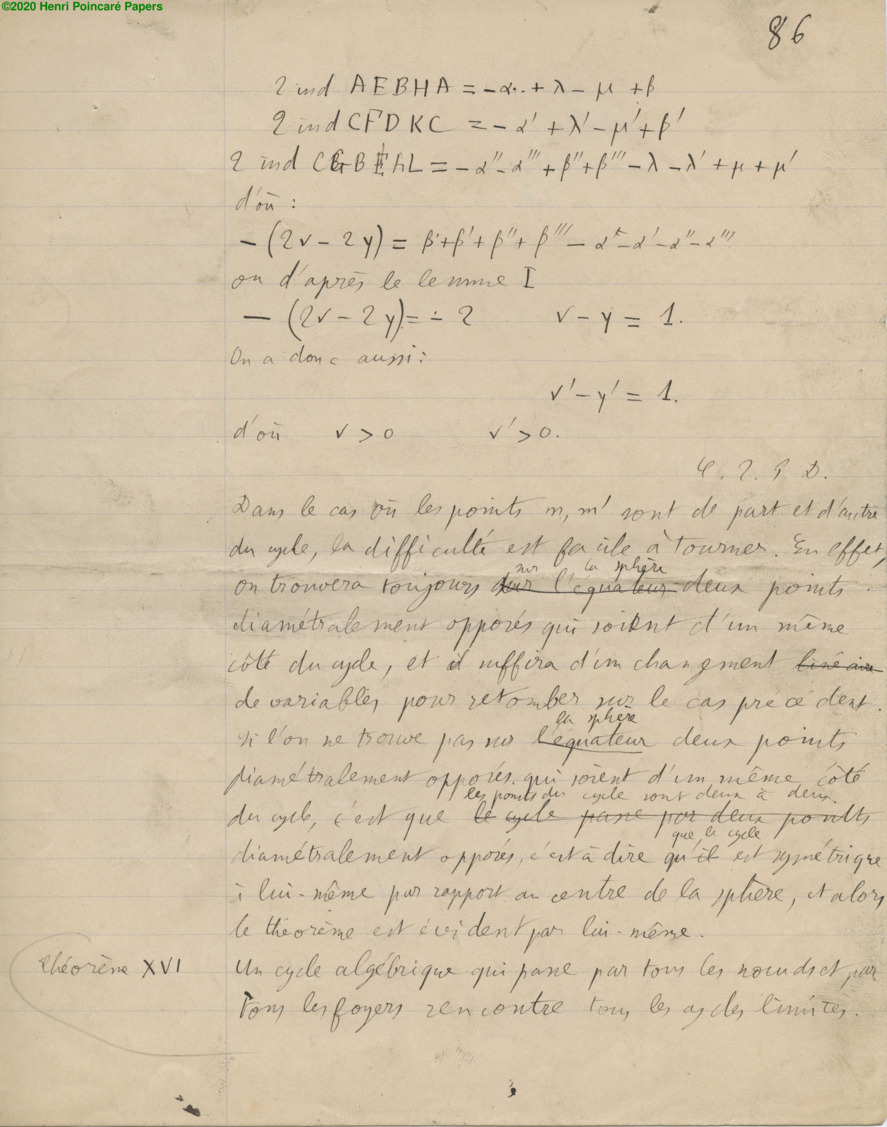 ©2020 Henri Poincaré Papers
86
2 ind AEBHA = - α + λ - μ + β
2 ind CFDKC = - α' + λ' - μ' + β'
2 ind CGBEHL = - α'' - α''' + β'' + β''' - λ - λ' + μ + μ'
d'où :
- (2v - 2y) = β + β' + β'' + β''' - α - α' - α'' - α'''
ou d'après le lemme I
- (2v - 2y) = - 2 v - y = 1.
On a donc aussi :
v' - y' = 1.
d'où v > 0 v' > 0.
C. Q. F. D.
Dans le cas où les points m, m' sont de part et d'autre
du cycle, la difficulté est facile à tourner. En effet,
sur la sphère
on trouvera toujours sur l'équateur deux points
diamétralement opposés qui soient d'un même
côté du cycle, et il suffira d'un changement linéaire
de variables pour retomber sur le cas précédent.
la sphère
Si l'on ne trouve pas sur l'équateur deux points
diamétralement opposés qui soient d'un même côté
les points du cycle sont deux à deux
du cycle, c'est que le cycle passe par deux points
que le cycle
diamétralement opposés, c'est à dire qu'il est symétrique
à lui-même par rapport au centre de la sphère, et alors
le théorème est évident par lui-même.
Théorème XVI Un cycle algébrique qui passe par tous les noeuds et par
tous les foyers rencontre tous les cycles limites.